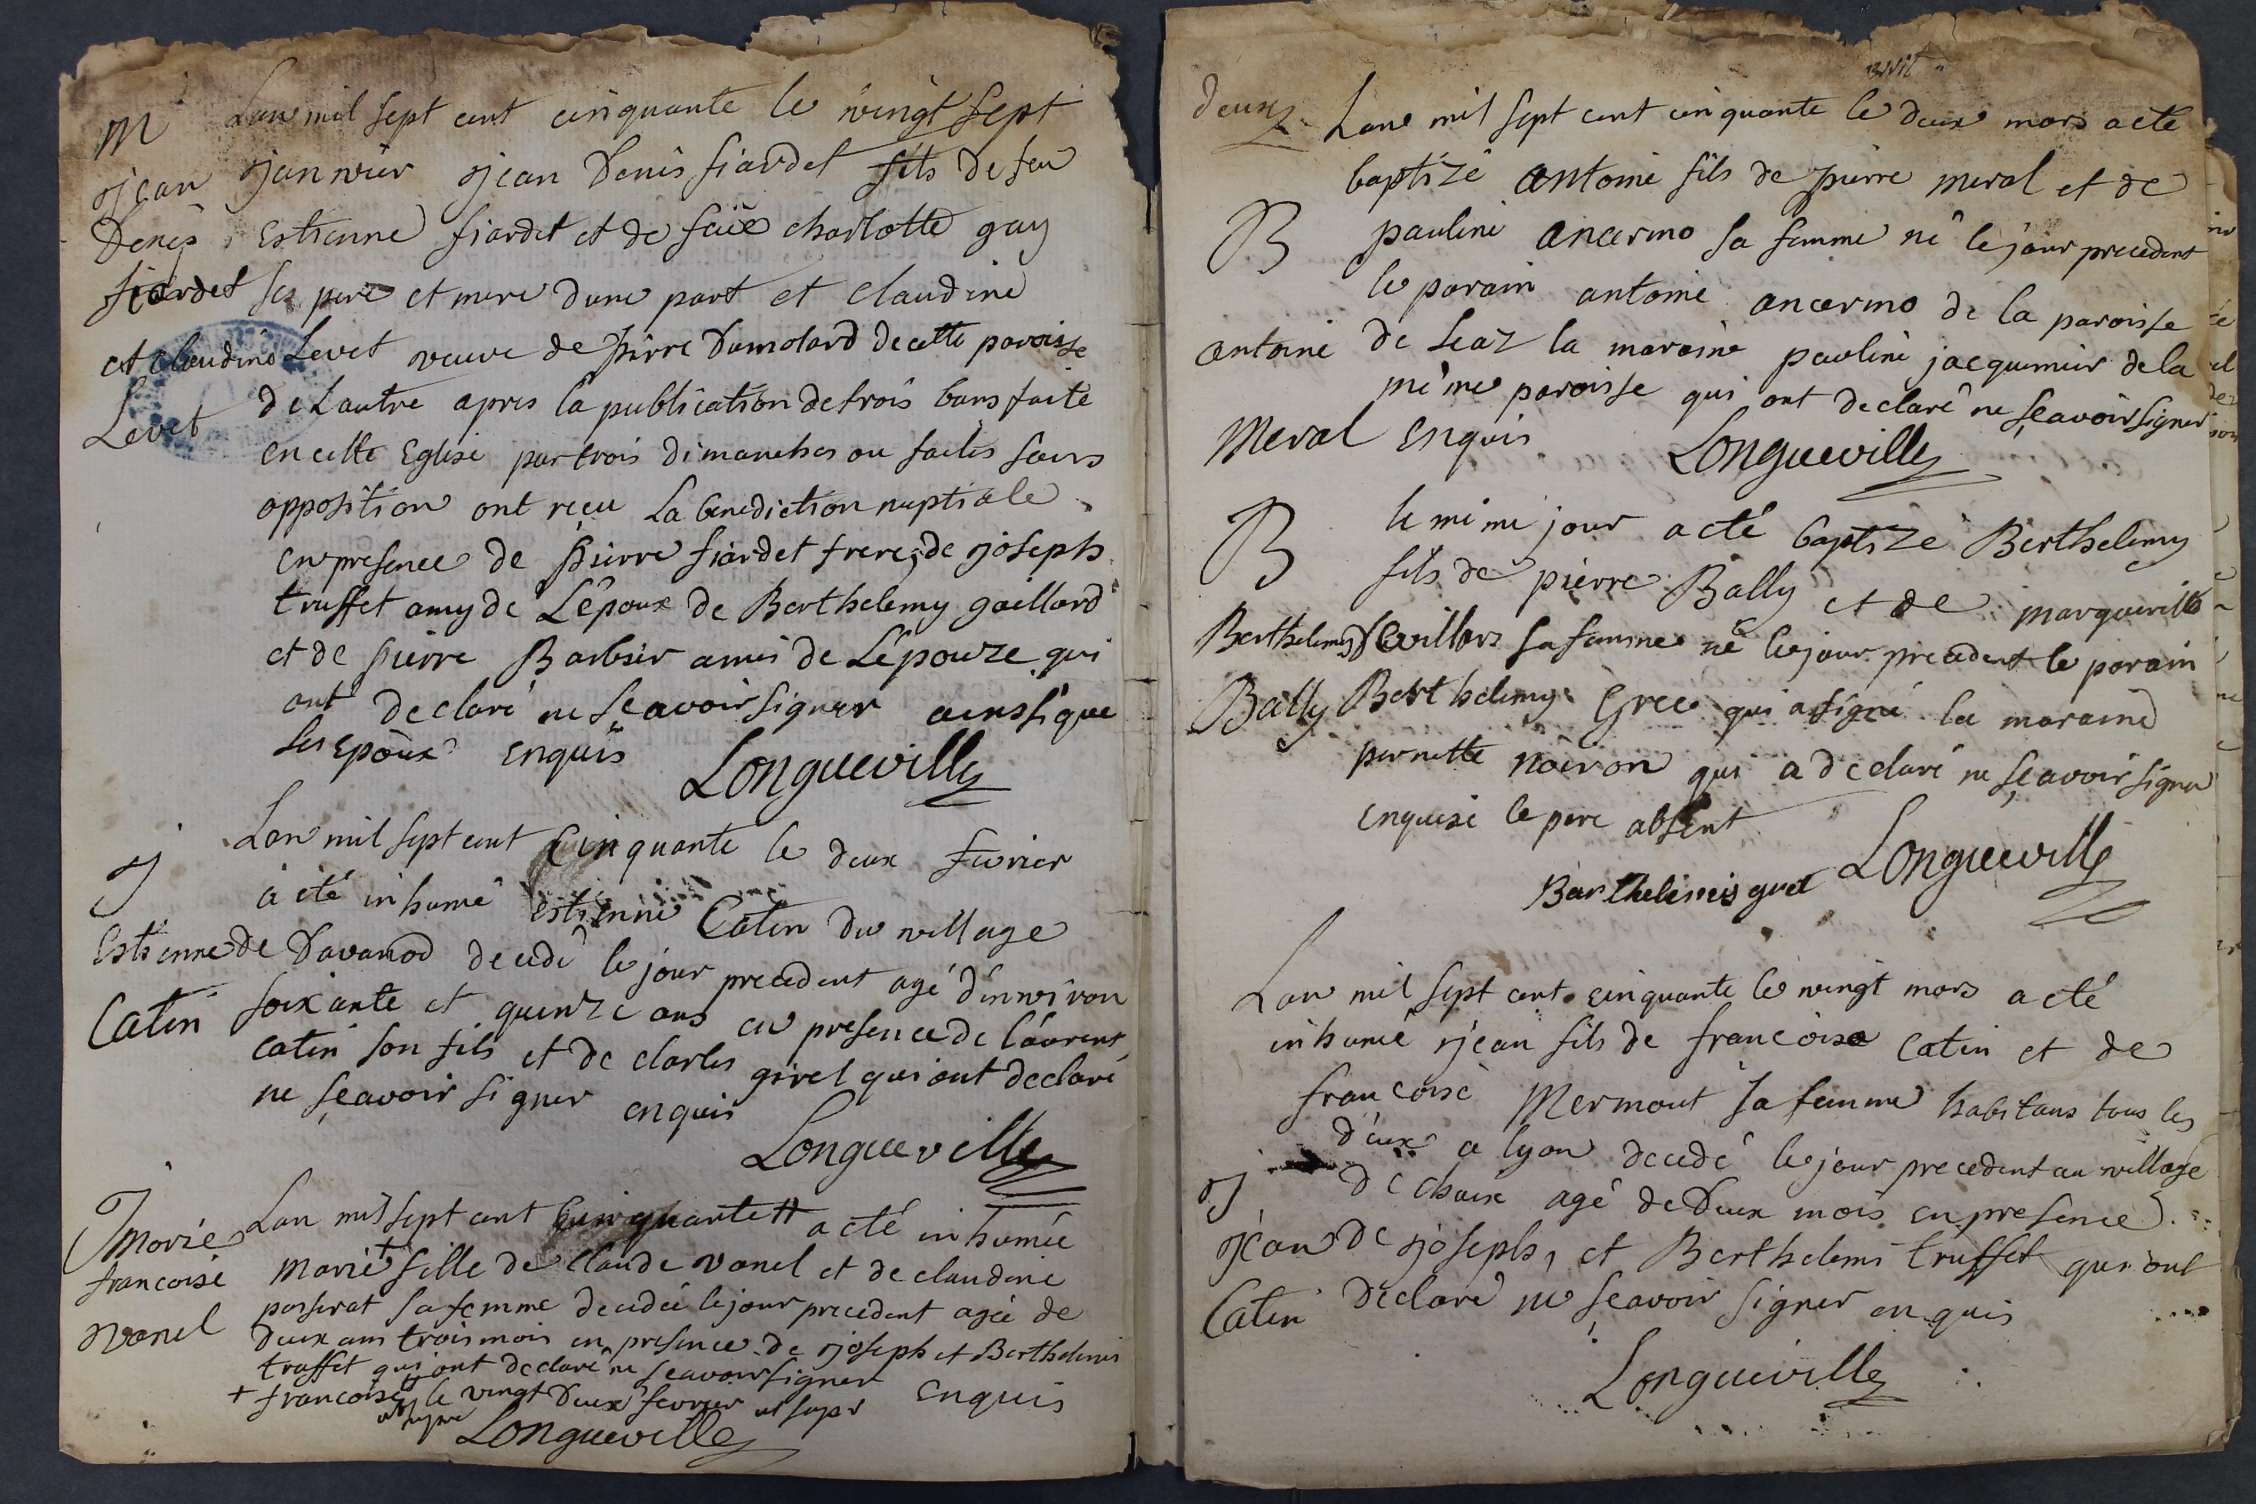 M
Lan mil sept cent cinquante le vingt sept
jean janvier jean Denis fiardet fils de feu
Denis Estienne fiardet et de feüe charlotte gay
fiardet ses pere et mere dune part et claudine
et claudine Levet veuve de pierre Dumolard de cette paroisse
Levet de Lautre apres la publication de trois bans faite
en cette Eglise par trois dimanches ou faites sans
opposition ont reçu La benediction nuptiale
en presence de pierre fiardet frere, de joseph
truffet amy de Lépoux de Berthelemy gaillard
et de pierre Barbier amis de Lépouze qui
ont declaré ne sçavoir signer ainsi que
les Epoux enquis Longueville
Lan mil sept cent Cinquante le deux fevrier
J à eté inhumé Estienne Catin du village
Estienne de Davanod decedé le jour precedent agé dénviron
Catin soixante et quinze ans en presence de laurent
catin son fils et de charles girel qui ont declaré
ne sçavoir signer enquis
Longueville
J marie Lan mil sept cent Cinquante # a eté inhumée
francoise marie + fille de Claude vanel et de claudine
vanel passerat sa femme decedée le jour precedent agée de
deux ans trois mois en presence de joseph et Berthelemi
truffet qui ont declaré ne sçavoir signer
+ francoise # le vingt deux fevrier ut supr enquis
ut supra Longueville
deux
Lan mil sept cent cinquante le deux mars a eté
baptizé antoine fils de pierre meral et de
B pauline ancermo sa femme né le jour precedent
le parain antoine ancermo de la paroisse
antoine de Leaz la maraine pauline jacquemier de la
même paroisse qui ont declaré ne sçavoir signer
Meral Enquis Longueville
B le méme jour a eté baptizé Berthelemy
fils de pierre Bally et de margueritte
Berthelemy sevillon sa femme né le jour precedent le parain
Bally Berthelemy Gree qui a signé la maraine
pernette noiron qui a declaré ne sçavoir signer
enquise le pere absent
Barthelemis gret Longueville
Lan mil sept cent cinquante le vingt mars a eté
inhumé jean fils de francoise Catin et de
francoise Mermout sa femme habitans tous les
deux a lyon decedé le jour precedent au village
J de choux agé de Deux mois en presence
jean de joseph, et Berthelemi truffet qui ont
Catin declaré ne sçavoir signer enquis
Longueville